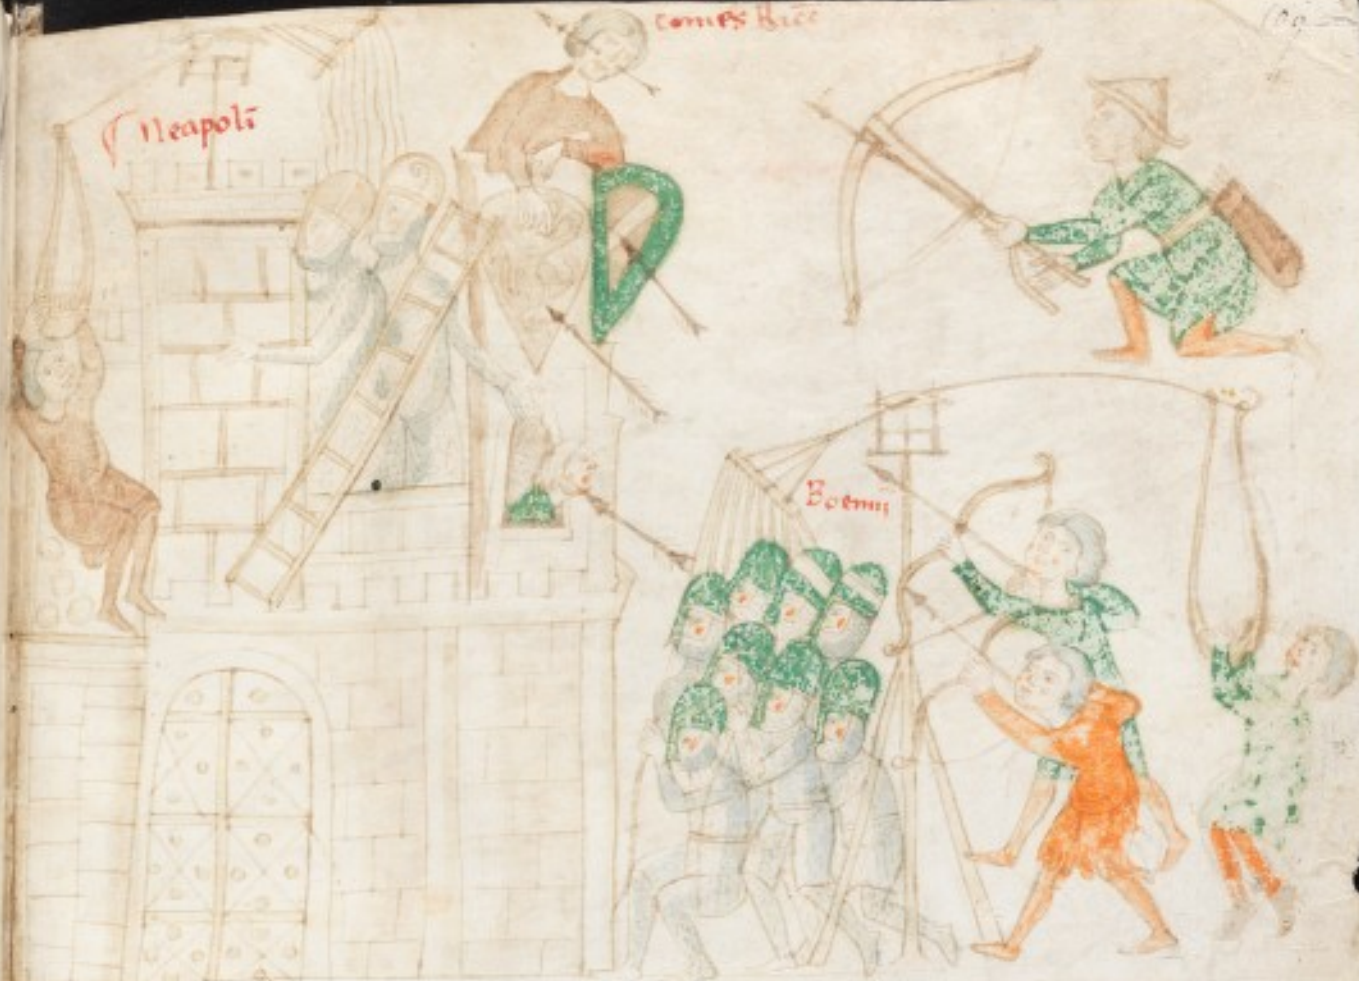 comes Ricc̄
Neapolī
Boemii